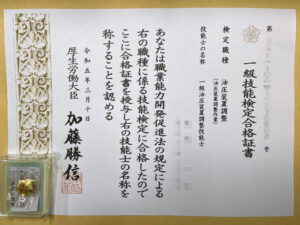 第
号
一級技能検定合格証書
検定職種 油圧装置調整
(油圧装置調整作業)
技能士の名称 一級油圧装置調整技能士
あなたは職業能力開発促進法の規定による
右の職種に係る技能検定に合格したので
ここに合格証書を授与し右の技能士の名称を
称することを認める
令和五年三月十日
厚生労働大臣 加藤勝信